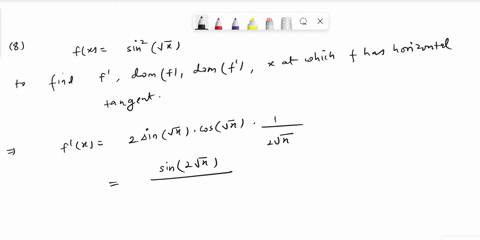 (8) f(x) = sin²(√x)
to find f', dom(f), dom(f'), x at which f has horizontal
tangent.
⇒ f'(x) = 2 sin(√x) · cos(√x) · 1/2√x
= sin(2√x)